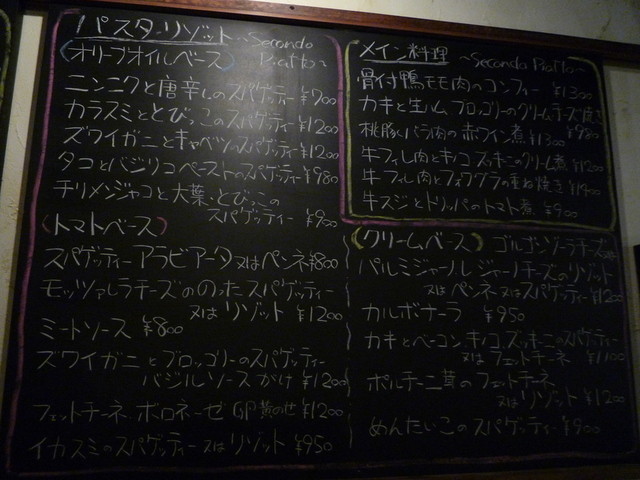 パスタ・リゾット ~Secondo
Piatto~
(オリーブオイルベース)
ニンニクと唐辛しのスパゲッティー ¥700
カラスミととびっこのスパゲッティー ¥1200
ズワイガニとキャベツのスパゲッティー ¥1200
タコとバジリコペーストのスパゲッティー ¥980
チリメンジャコと大葉・とびっこの
スパゲッティー ¥900
(トマトベース)
スパゲッティーアラビアータ 又はペンネ ¥800
モッツァレラチーズののったスパゲッティー
又はリゾット ¥1200
ミートソース ¥800
ズワイガニとブロッコリーのスパゲッティー
バジルソースがけ ¥1200
フェットチーネ ボロネーゼ 卵黄のせ ¥1200
イカスミのスパゲッティー 又はリゾット ¥950
メイン料理 ~Secondo Piatto~
骨付鴨モモ肉のコンフィー ¥1300
カキと生ハム ブロッコリーのクリームチーズ焼き
¥980
桃豚バラ肉の赤ワイン煮 ¥1300
牛フィレ肉とキノコ ズッキーニのクリーム煮 ¥1200
牛フィレ肉とフォワグラの重ね焼き ¥1400
牛スジとトリッパのトマト煮 ¥900
(クリームベース) ゴルゴンゾーラチーズ
パルミジャーノレジャーノチーズのリゾット
又はペンネ 又はスパゲッティー ¥1200
カルボナーラ ¥950
カキとベーコン キノコ ズッキーニのスパゲッティー
又はフェットチーネ ¥1100
ポルチーニ茸のフェットチーネ
又はリゾット ¥1200
めんたいこのスパゲッティー ¥900